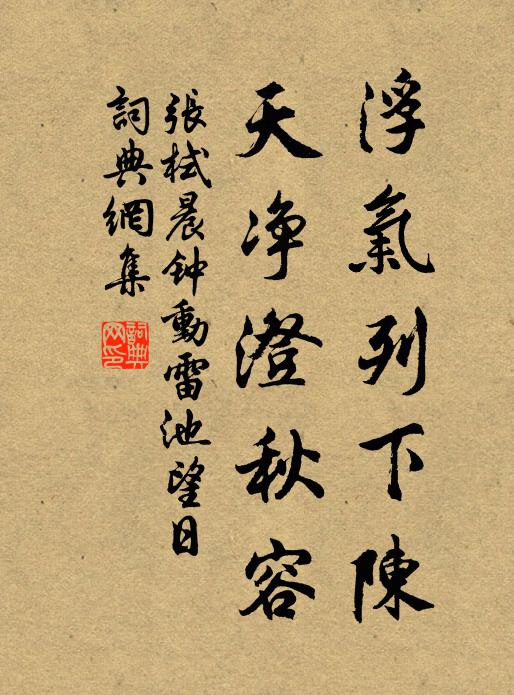 浮氣列下陳
天净澄秋容
張栻晨钟動雷池望日
詞典網集
詞典网印